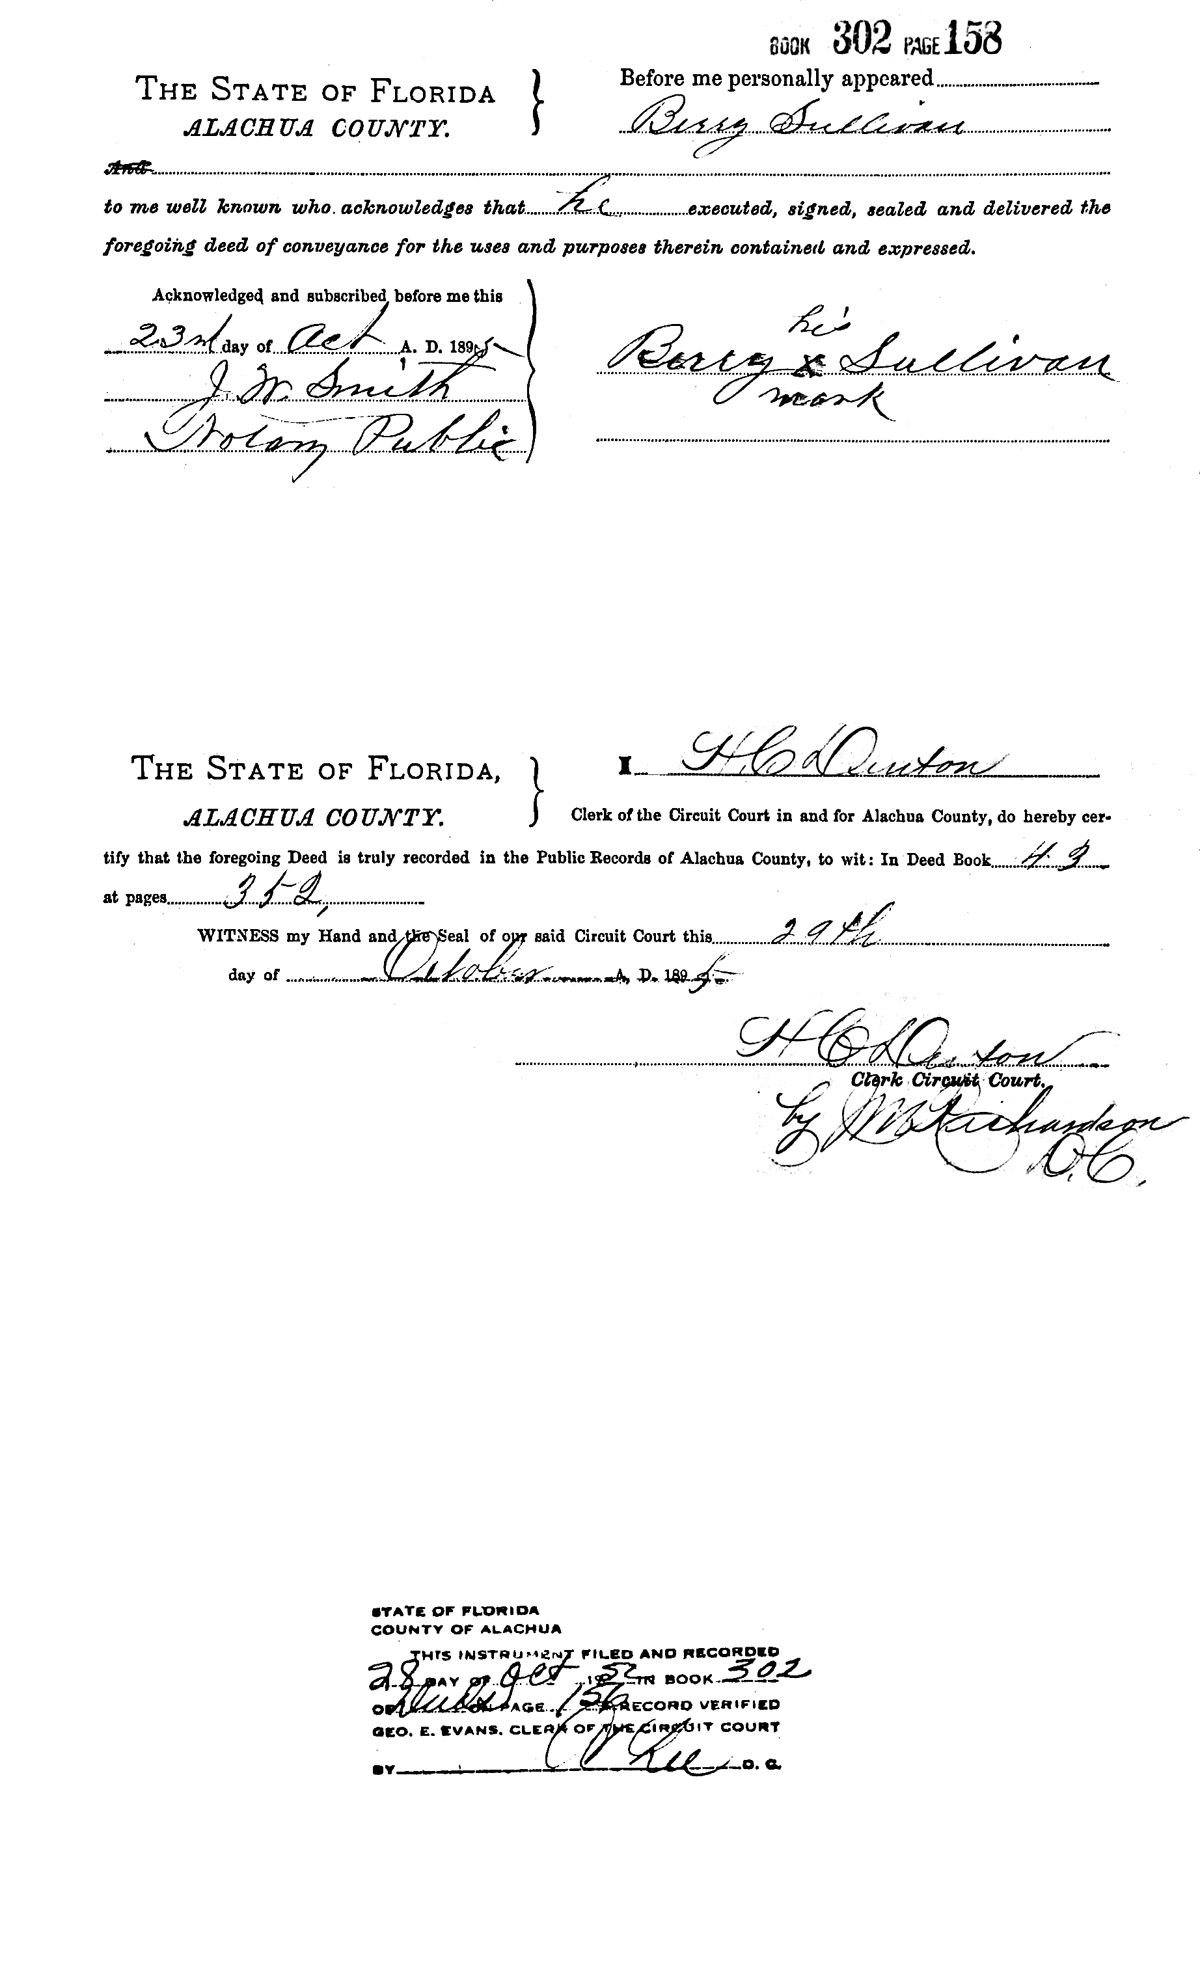 BOOK 302 PAGE 158
THE STATE OF FLORIDA
ALACHUA COUNTY.
Before me personally appeared
Berry Sullivan
And
to me well known who acknowledges that he executed, signed, sealed and delivered the
foregoing deed of conveyance for the uses and purposes therein contained and expressed.
Acknowledged and subscribed before me this
23rd day of Oct A. D. 1895
J. W. Smith
Notary Public
his
Berry x Sullivan
mark
THE STATE OF FLORIDA,
ALACHUA COUNTY.
I H. C. Denton
Clerk of the Circuit Court in and for Alachua County, do hereby cer-
tify that the foregoing Deed is truly recorded in the Public Records of Alachua County, to wit: In Deed Book 43
at pages 352,
WITNESS my Hand and the Seal of our said Circuit Court this 29th
day of October A. D. 1895
H C Denton
Clerk Circuit Court.
by J M Richardson
D.C.
STATE OF FLORIDA
COUNTY OF ALACHUA
THIS INSTRUMENT FILED AND RECORDED
28 DAY OF Oct 1952 IN BOOK 302
OF Deeds ON PAGE 156 RECORD VERIFIED
GEO. E. EVANS, CLERK OF THE CIRCUIT COURT
BY Lee D. C.